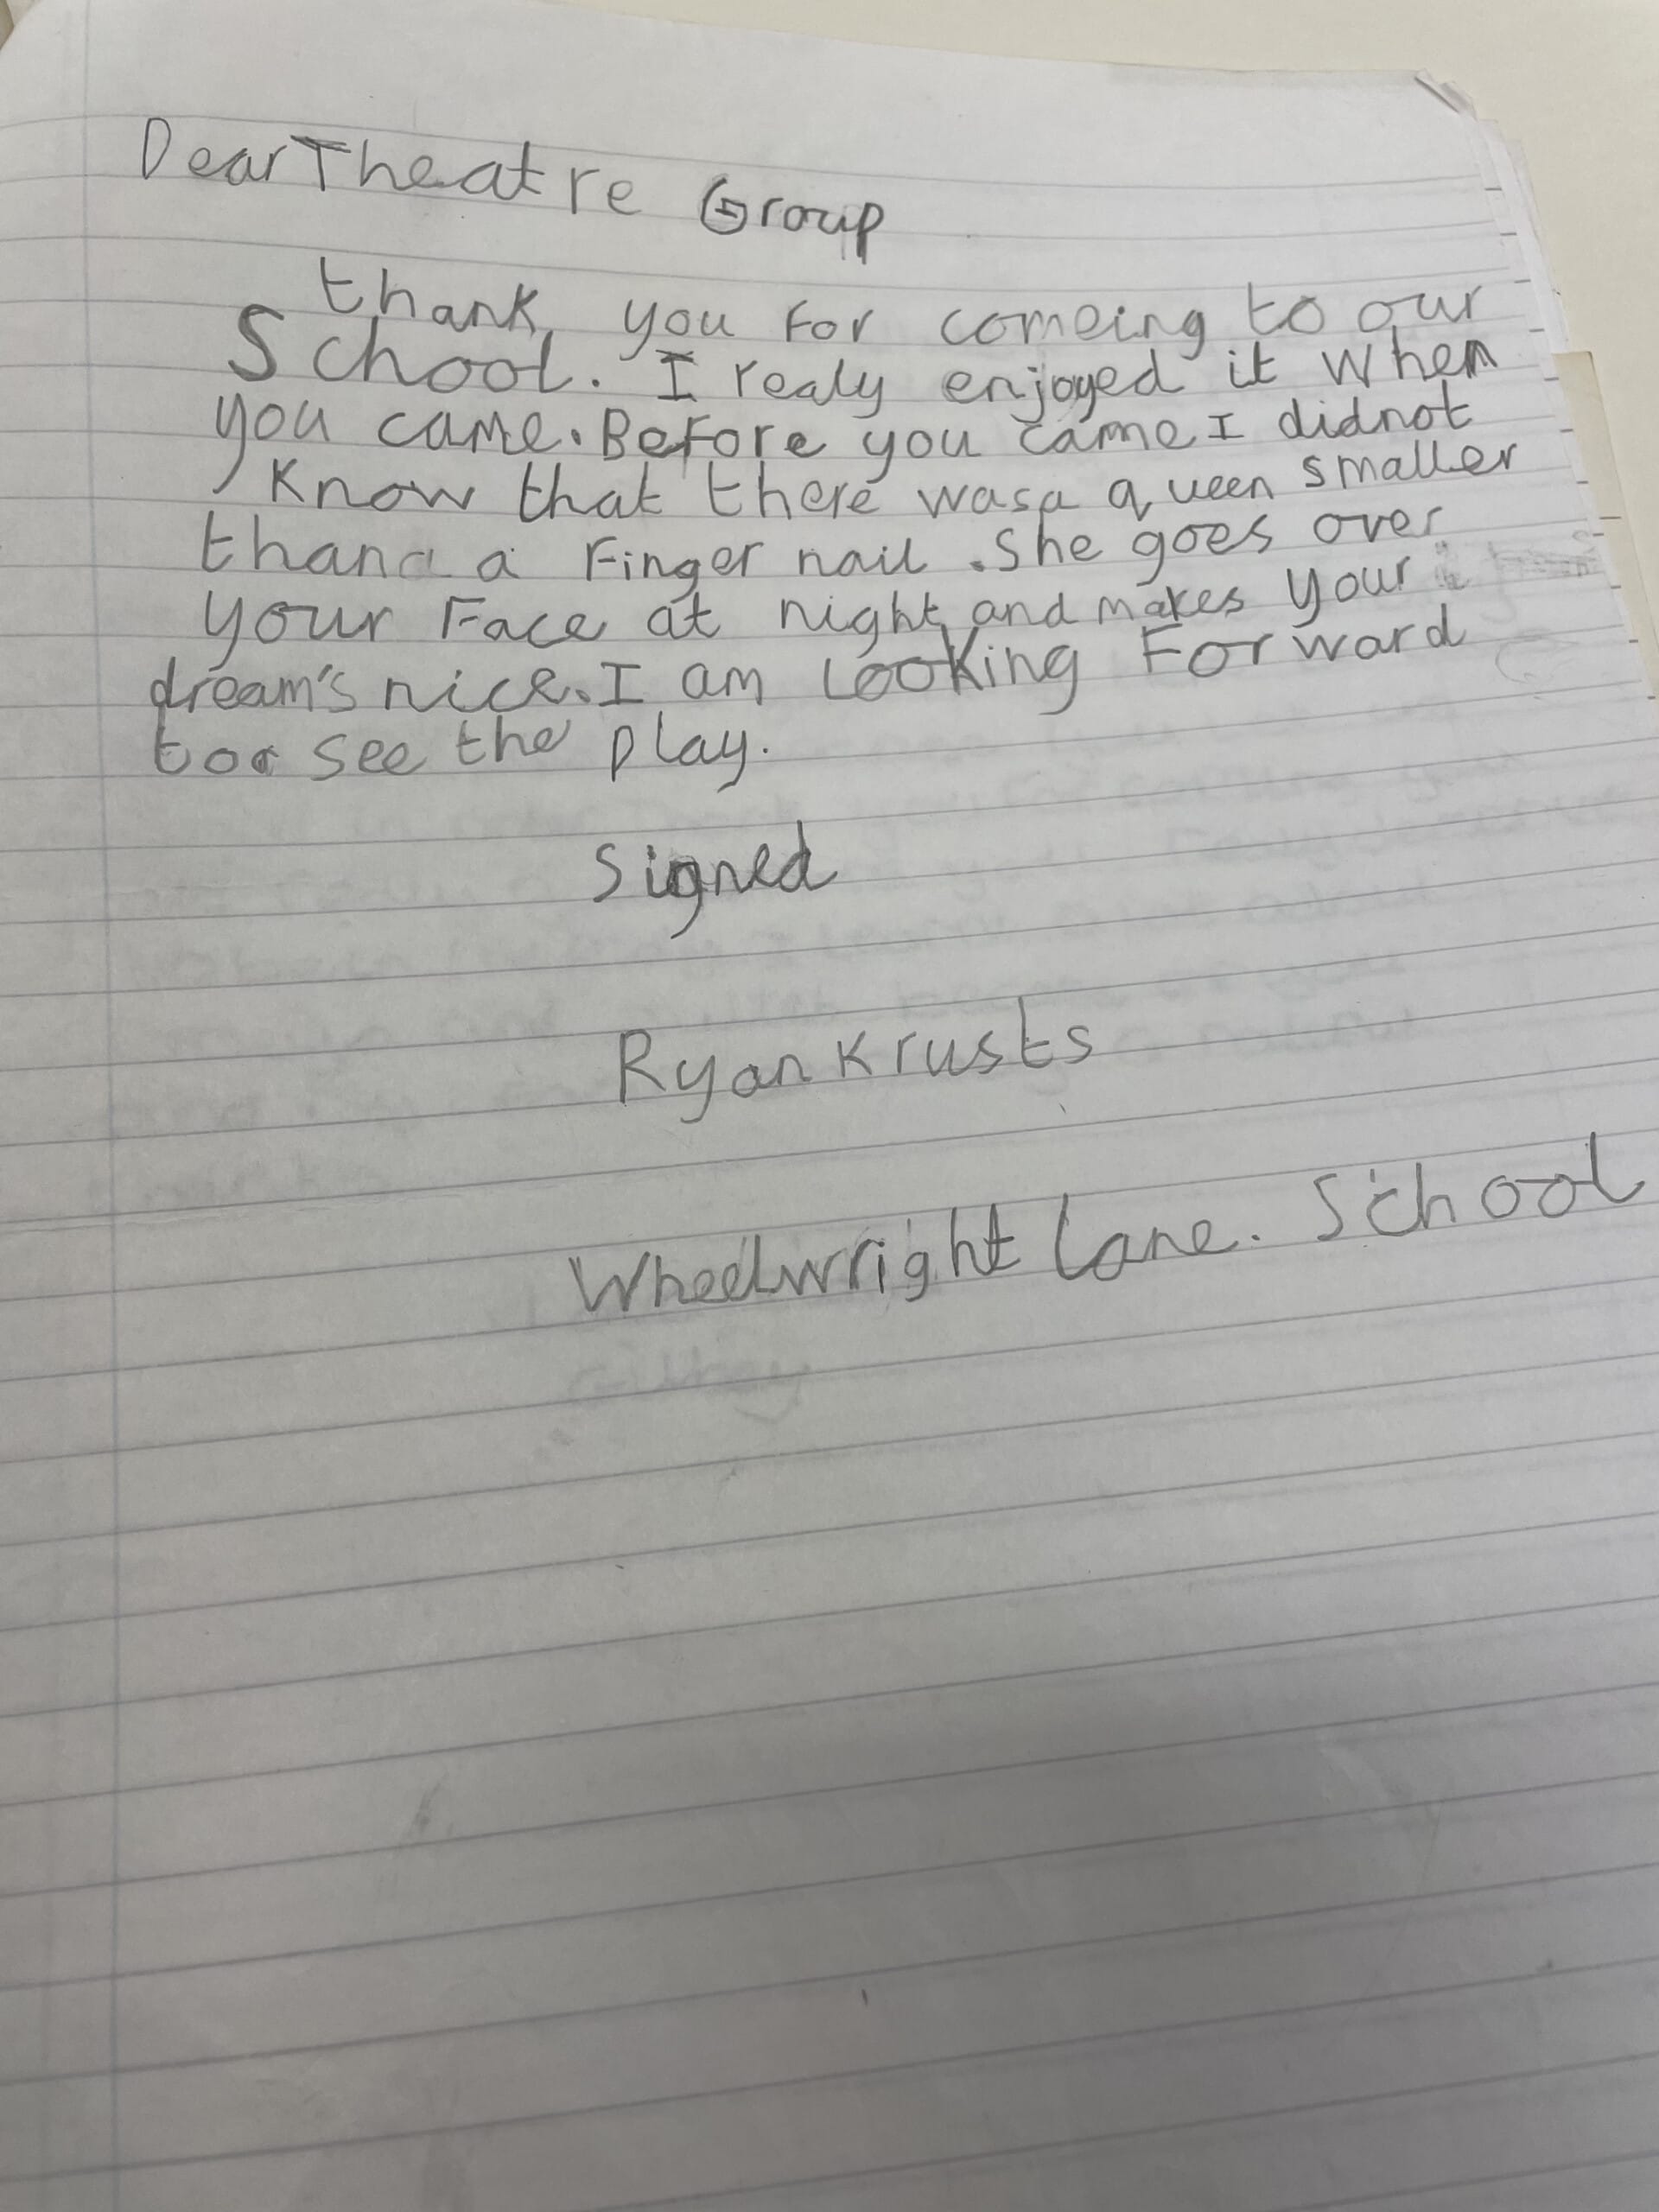 Dear Theatre Group
thank you for comeing to our
School. I realy enjoyed it when
you came. Before you came I didnot
Know that there was a queen smaller
than a a Finger nail. She goes over
your Face at night and makes your
dream's nice. I am looking Forward
too see the play.
signed
Ryan Krusts
Wheelwright Lane. School